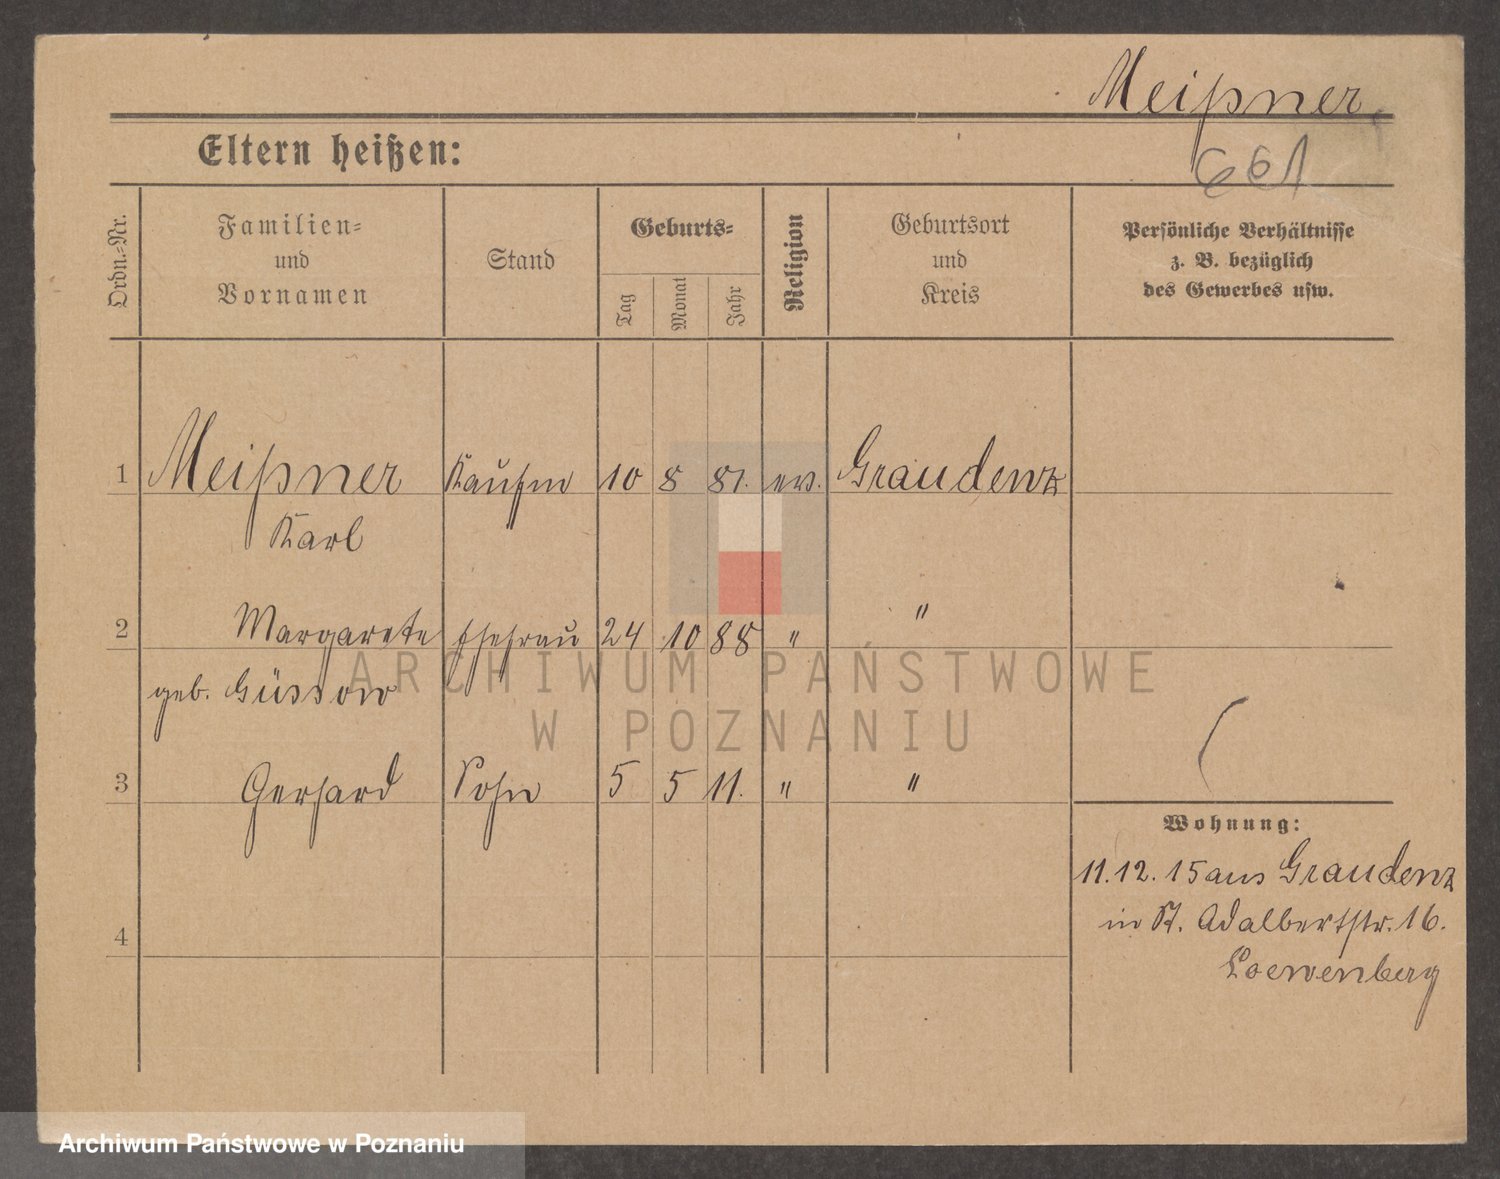 Meißner
661
Eltern heißen:
Ordn.-Nr.
Familien-
und
Vornamen
Stand
Geburts-
Tag
Monat
Jahr
Religion
Geburtsort
und
Kreis
Persönliche Verhältnisse
z. B. bezüglich
des Gewerbes usw.
1 Meißner Kaufm 10 8 81. ev. Graudenz
Karl
2 Margarete Ehefrau 24 10 88 " "
geb. Güssow
3 Gerhard Sohn 5 5 11. " "
4
Wohnung:
11.12.15 aus Graudenz
in St. Adalbertstr. 16.
Loewenberg
ARCHIWUM PAŃSTWOWE
W POZNANIU
Archiwum Państwowe w Poznaniu